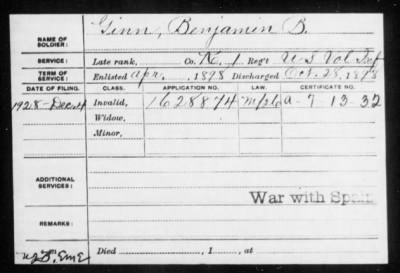 NAME OF SOLDIER: Ginn, Benjamin B.
SERVICE: Late rank, Co. K, 1 Reg't U S Vol Inf
TERM OF SERVICE: Enlisted Apr. 1898 Discharged Oct. 28, 1898
DATE OF FILING. CLASS. APPLICATION NO. LAW. CERTIFICATE NO.
1928-Dec.4 Invalid, 1628874 A-7 13-32
Widow,
Minor,
ADDITIONAL SERVICES:
War with Spain
REMARKS:
Died , 1 , at